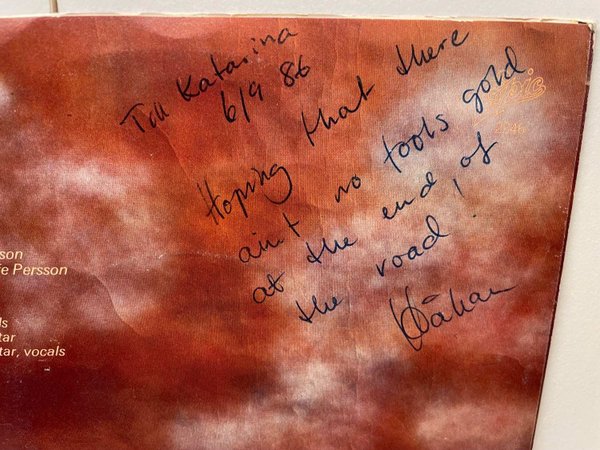 Till Katarina
6/9 86
Hoping that there
ain't no fools gold
at the end of
the road!
Håkan
Epic
son
e Persson
ls
tar
tar, vocals